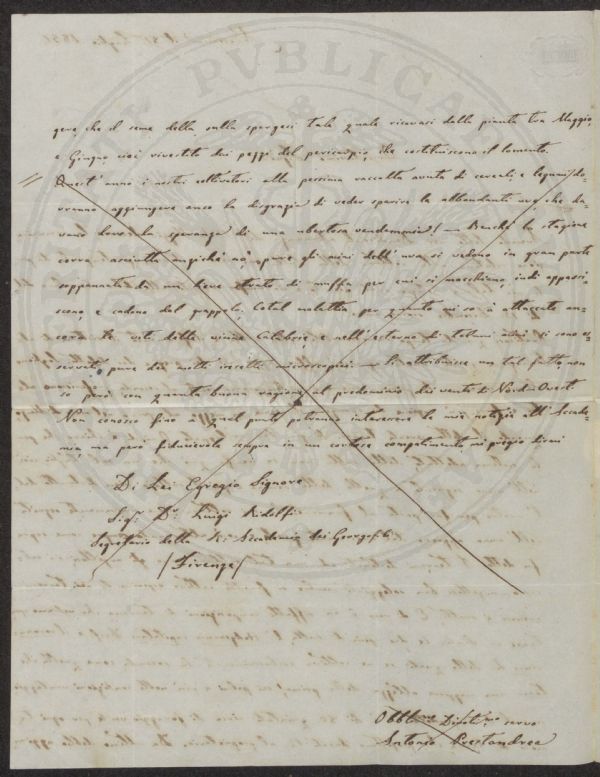 gere, che il seme della sulla spargesi tale quale ricavasi dalla pianta tra Maggio,
e Giugno, cioè rivestito dei pezzi del pericarpio, che costituiscono il lomento.
Quest'anno i nostri coltivatori alla pessima raccolta avuta di cereali, e legumi do-
vranno aggiungere anco la disgrazia di veder sparire le abbondanti uve che da-
vano loro la speranza di una ubertosa vendemmia! — Benché la stagione
corra asciutta anziché nò, pure gli acini dell'uva si vedono in gran parte
soppannati di un lieve strato di muffa per cui si macchiano indi appassi-
scono, e cadono dal grappolo. Cotal malattia per quanto mi so à attaccato an-
cora le viti delle vicine Calabrie, e nell'esterno di taluni acini si sono os-
servati pure dei molti insetti microscopici. — Si attribuisce un tal fatto, non
so però con quanta buona ragione, al predominio dei venti di Nord-Ovest
Non conosco fino a qual punto potranno interessare le mie notizie all'Accade-
mia, ma però fiducievole sempre in un cortese compatimento mi pregio dirmi
Di Lei Egregio Signore
Sigr. Dr. Luigi Ridolfi
Segretario della Accademia dei Georgofili
/Firenze/
Obblmo Divotmo servo
Antonio Prestandrea
PVBLICA